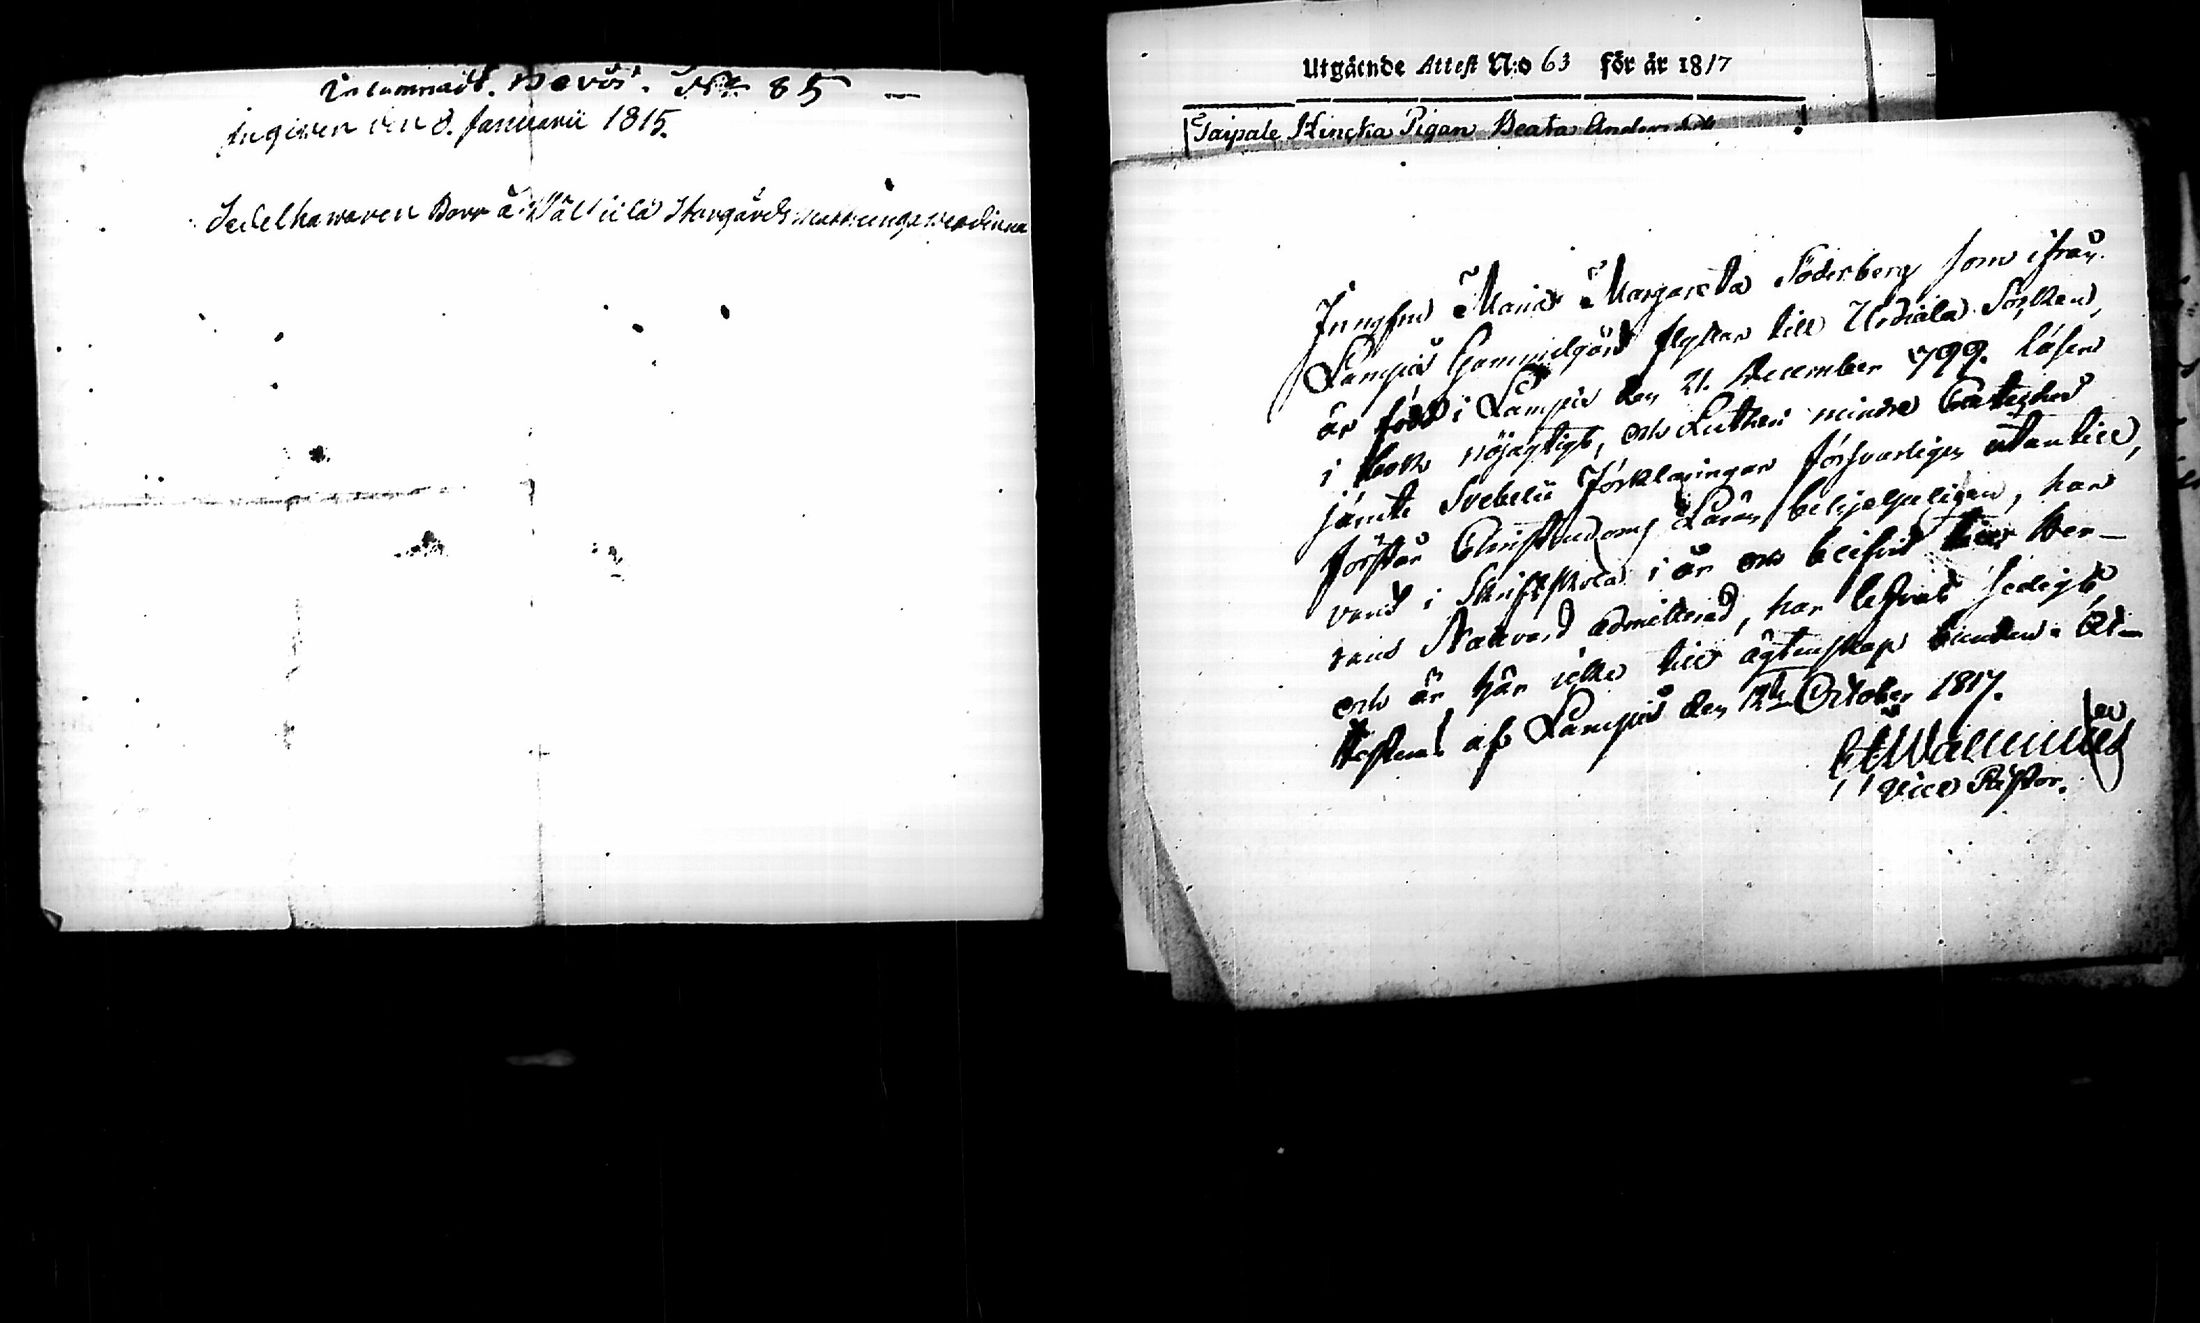 Inlämnadt. Bevis. No 85 —
Ingiven den 8. Januarii 1815.
Sedelhavaren Borr å Wällilä
Utgående Attest N:o 63 för år 1817
Taipale Kincka Pigan Beata Anders
Jungfru Maria Margareta Söderberg som ifrån
Lampis Gammelgård flyttar till Urdiala Sochen,
är född i Lampis den 21. December 1799. läser
i bok nöjagtigt, och Lutheri mindre Cateches
jämte Svebelii Förklaringar försvarligen utantill,
förstår Christendoms Läran behjelpeligen, har
varit i Skriftskola i år och blifvit till Her-
rans Nattvard admitterad, har lefvat sedigt,
och är här icke till ägtenskap bunden. At-
testeras af Lampis den 12te October 1817.
Vice Pastor.